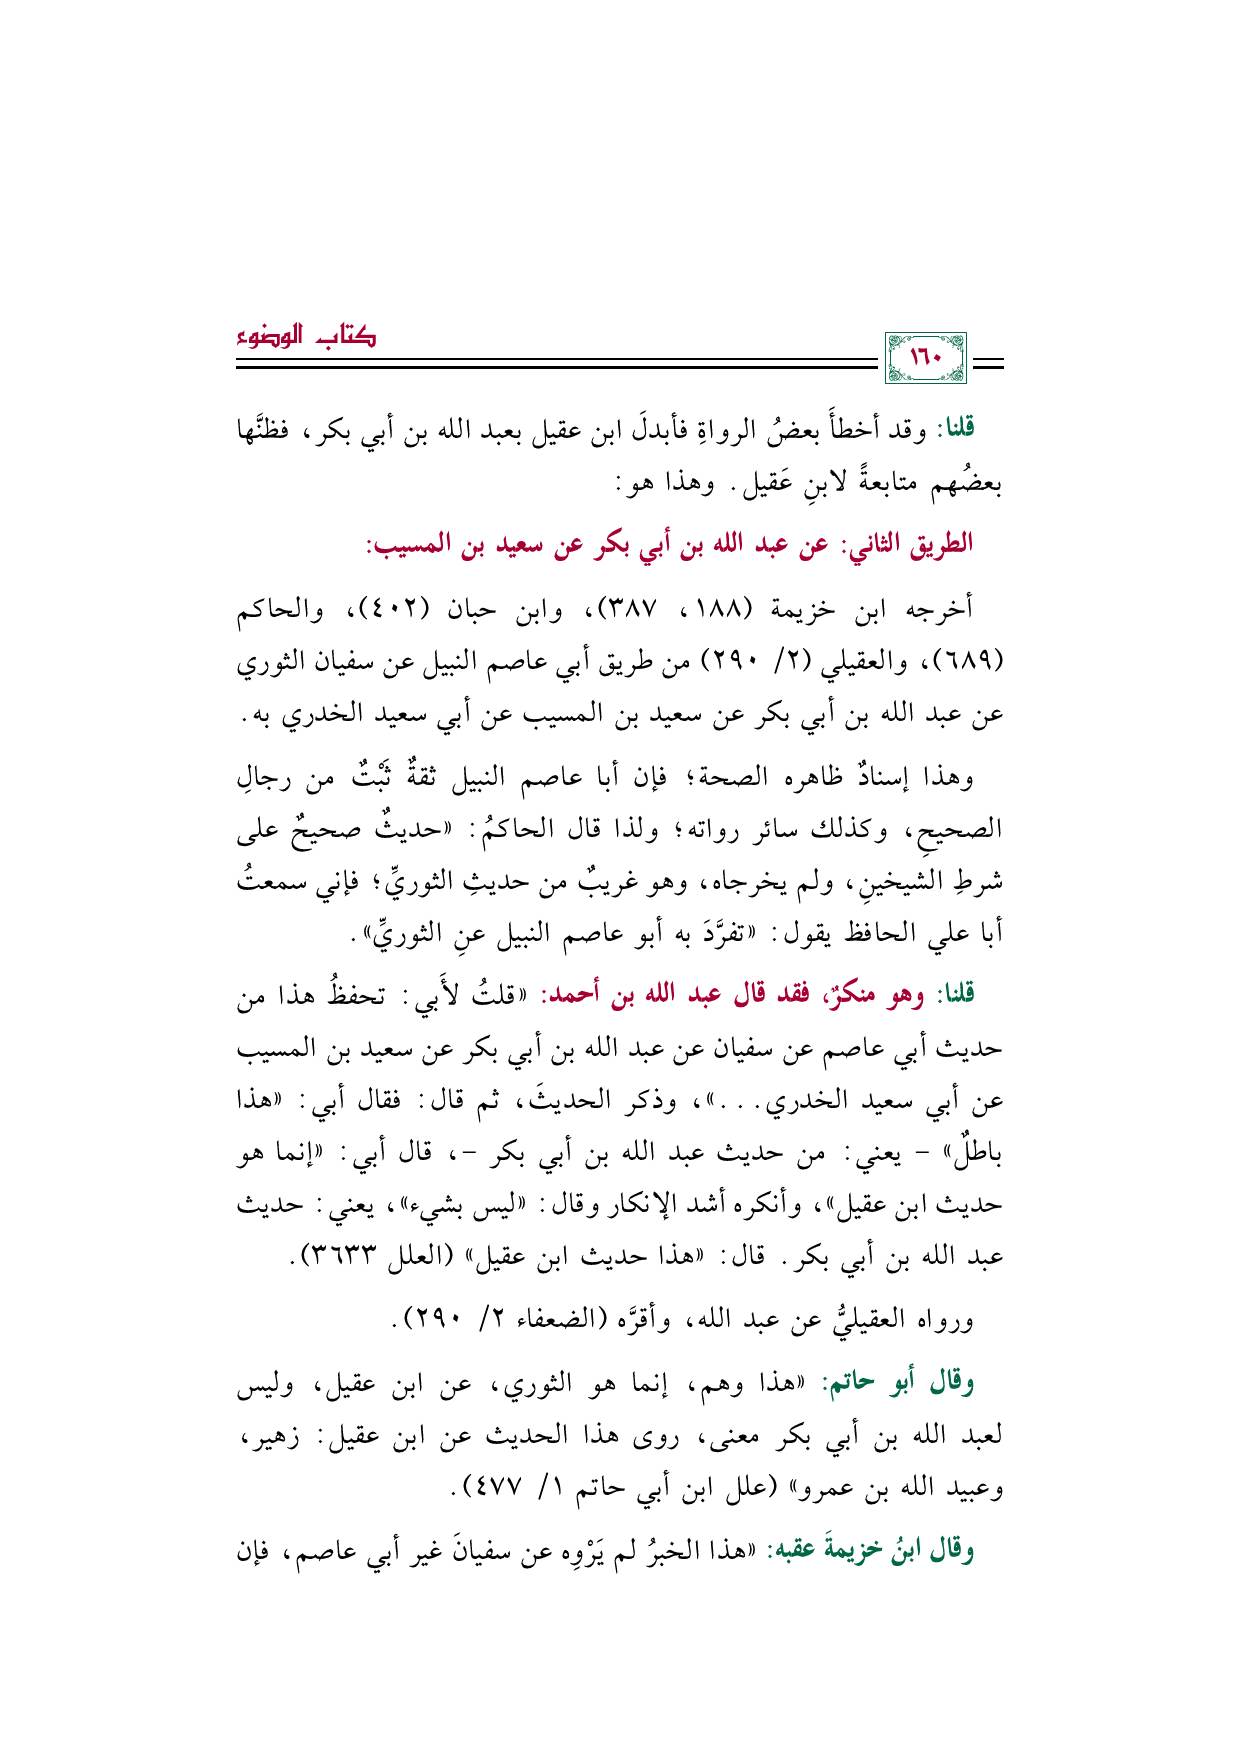 كتاب الوضوء
١٦٠
قلنا: وقد أخطأَ بعضُ الرواةِ فأبدلَ ابن عقيل بعبد الله بن أبي بكر، فظنَّها
بعضُهم متابعةً لابنِ عَقيل. وهذا هو:
الطريق الثاني: عن عبد الله بن أبي بكر عن سعيد بن المسيب:
أخرجه ابن خزيمة (١٨٨، ٣٨٧)، وابن حبان (٤٠٢)، والحاكم
(٦٨٩)، والعقيلي (٢/ ٢٩٠) من طريق أبي عاصم النبيل عن سفيان الثوري
عن عبد الله بن أبي بكر عن سعيد بن المسيب عن أبي سعيد الخدري به.
وهذا إسنادٌ ظاهره الصحة؛ فإن أبا عاصم النبيل ثقةٌ ثَبْتٌ من رجالِ
الصحيحِ، وكذلك سائر رواته؛ ولذا قال الحاكمُ: «حديثٌ صحيحٌ على
شرطِ الشيخينِ، ولم يخرجاه، وهو غريبٌ من حديثِ الثوريِّ؛ فإني سمعتُ
أبا علي الحافظ يقول: «تفرَّدَ به أبو عاصم النبيل عنِ الثوريِّ».
قلنا: وهو منكرٌ، فقد قال عبد الله بن أحمد: «قلتُ لأَبي: تحفظُ هذا من
حديث أبي عاصم عن سفيان عن عبد الله بن أبي بكر عن سعيد بن المسيب
عن أبي سعيد الخدري...»، وذكر الحديثَ، ثم قال: فقال أبي: «هذا
باطلٌ» – يعني: من حديث عبد الله بن أبي بكر –، قال أبي: «إنما هو
حديث ابن عقيل»، وأنكره أشد الإنكار وقال: «ليس بشيء»، يعني: حديث
عبد الله بن أبي بكر. قال: «هذا حديث ابن عقيل» (العلل ٣٦٣٣).
ورواه العقيليُّ عن عبد الله، وأقرَّه (الضعفاء ٢/ ٢٩٠).
وقال أبو حاتم: «هذا وهم، إنما هو الثوري، عن ابن عقيل، وليس
لعبد الله بن أبي بكر معنى، روى هذا الحديث عن ابن عقيل: زهير،
وعبيد الله بن عمرو» (علل ابن أبي حاتم ١/ ٤٧٧).
وقال ابنُ خزيمةَ عقبه: «هذا الخبرُ لم يَرْوِه عن سفيانَ غير أبي عاصم، فإن